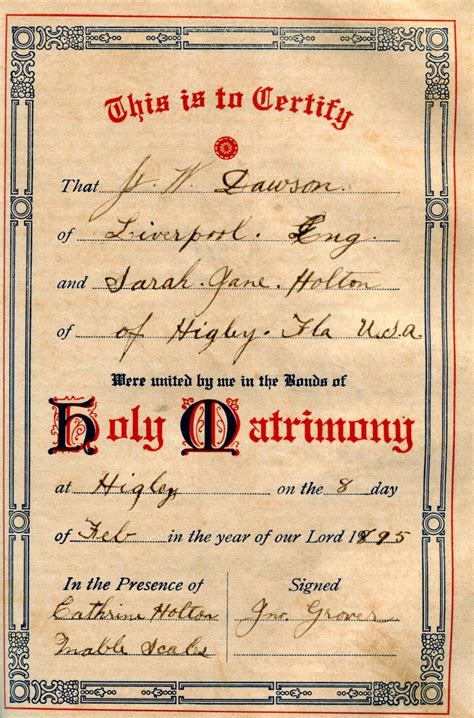 This is to Certify
That H. W. Dawson.
of Liverpool. Eng
and Sarah. Jane. Holton
of of Higley. Fla U.S.A
Were united by me in the Bonds of
Holy Matrimony
at Higley on the 8 day
of Feb in the year of our Lord 1895
In the Presence of
Signed
Cathrine Holton
Jno. Grover
Mable Scales